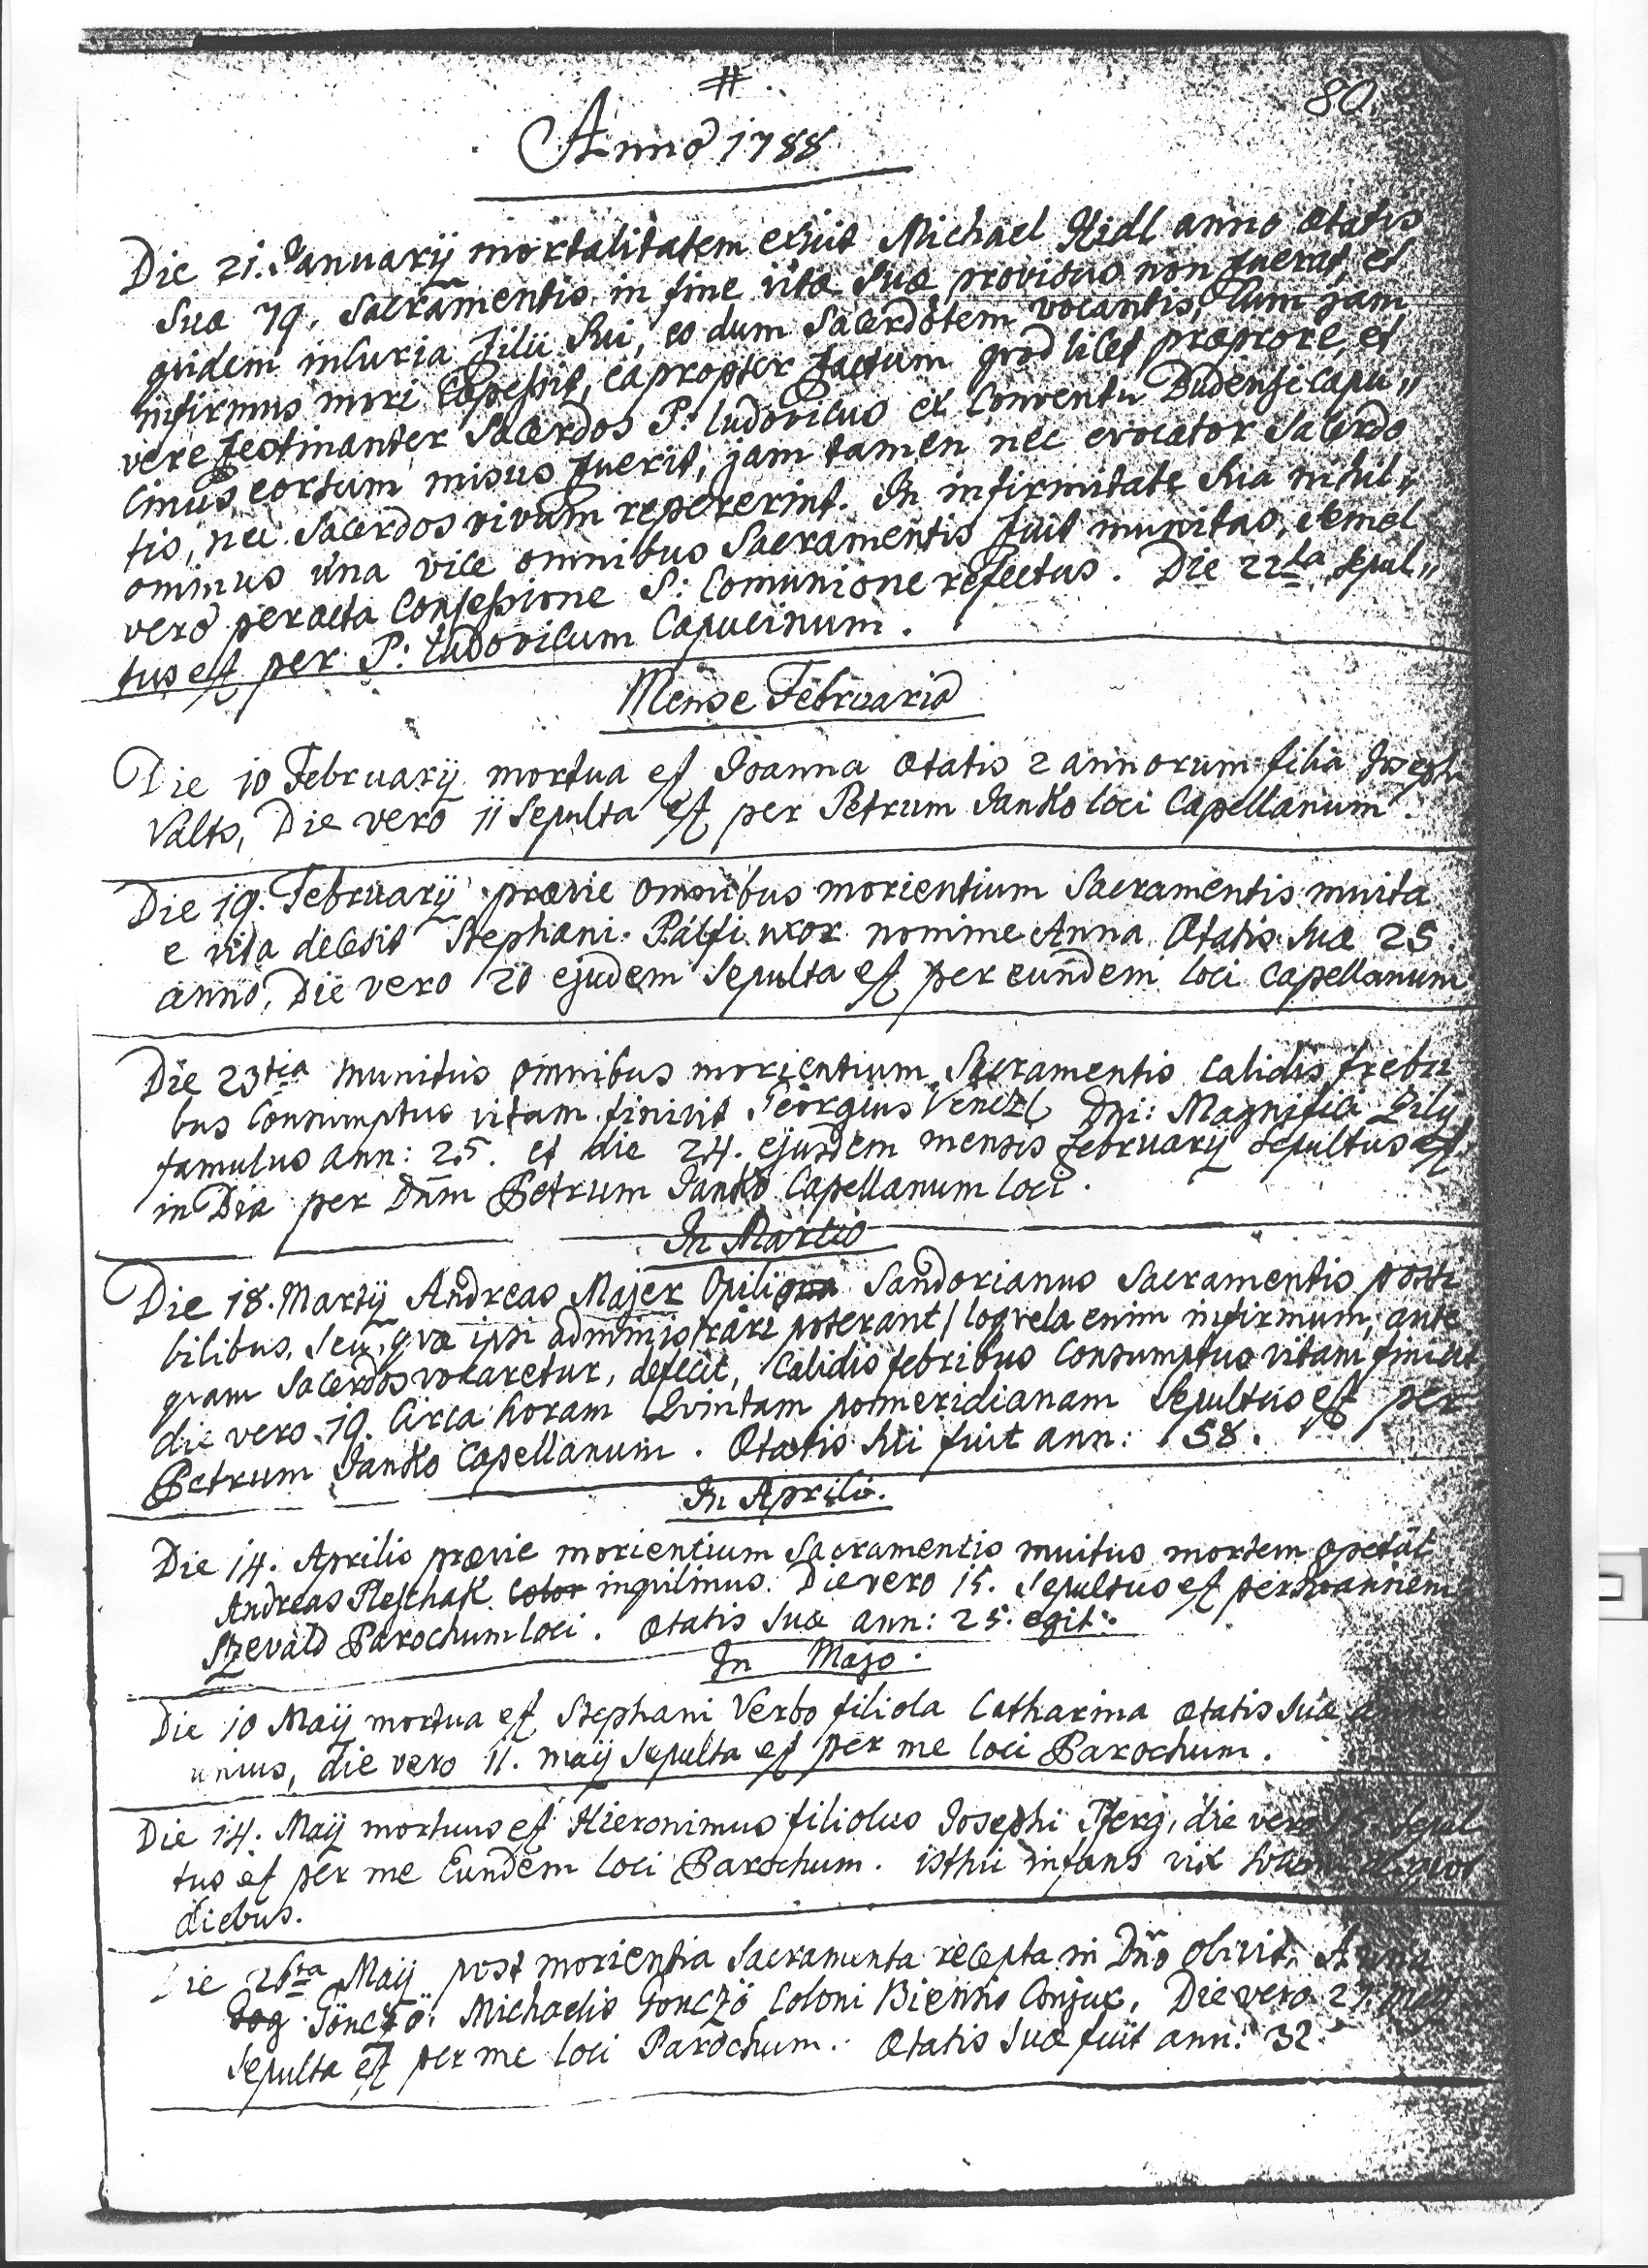 #
80.
Anno 1788
Die 21. Januarÿ mortalitatem exuit Michael Hidl anno ætatis
Suæ 79. Sacramentis in fine vitæ Suæ provisus non fuerat, et
quidem incuria filii Sui, eo dum Sacerdotem vocantis, cum jam
infirmus mori Capessit, eapropter factum quod licet præpropere, et
vere festinanter Sacerdos P: Ludovicus ex Conventu Budensi Capu„
cinus, eorsum misus fuerit, jam tamen nec evocator Sacerdo
tis, nec Sacerdos vivum repererint. In infirmitate Sua nihil„
ominus una vice omnibus Sacramentis fuit munitus, Semel
vero peracta Confessione S: Comunione refectus. Die 22da Sepul„
tus est per P: Ludovicum Capucinum.
Mense Februario
Die 10 Februarÿ mortua est Joanna ætatis 2 annorum filia Joseph
Valts, Die vero 11 Sepulta est per Petrum Janko loci Capellanum.
Die 19. Februarÿ prævie omnibus morientium Sacramentis muita
e vita decesit Stephani Pálfi uxor nomine Anna Ætatis Suæ 25
anno, Die vero 20 ejudem Sepulta est per eundem loci Capellanum
Die 23tia munitus omnibus morientium Sacramentis Calidis frebri
bus Consumptus vitam finivit Georgius Venczl Dni: Magnifici Zily
famulus ann: 25. et die 24. ejusdem mensis februarÿ Sepultus est
in Dia per Dnm Petrum Janko Capellanum loci.
In Martio
Die 18. Martÿ Andreas Majer Opilio Sandorianus Sacramentis possi
bilibus, Seu, quæ ipsi administrari poterant / loqvela enim infirmum, ante
quam Sacerdos vocaretur, defecit, Calidis febribus Consumptus vitam finivit
die vero 19. Circa horam Qvintam pomeridianam Sepultus est per
Petrum Janko Capellanum. Ætatis Sui fuit ann: 58.
In Aprili.
Die 14. Aprilis prævie morientium Sacramentis muitus mortem opetät
Andreas Pleschak Color inquilinus. Die vero 15. Sepultus est per Joannem
Szevald Parochum loci. Ætatis Suæ ann: 25. egit.
In Majo.
Die 10 Maÿ mortua est Stephani Verbo filiola Catharina ætatis Suæ anni
unius, die vero 11. maÿ Sepulta est per me loci Parochum.
Die 14. Maÿ mortuus est Hieronimus filiolus Josephi Pferg, die vero 15. Sepul
tus est per me Eundem loci Parochum. isthic infans vix
diebus.
Die 26ta Maÿ post morientia Sacramenta recepta in Dno obivit Anna
Gönczö, Michaelis Gönczö Coloni Biennis Conjux, Die vero 27. Maÿ
Sepulta est per me loci Parochum. Ætatis Suæ fuit ann: 32.